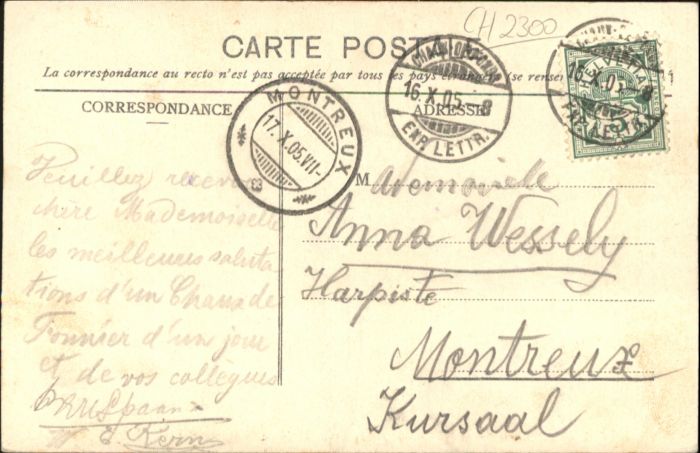 CH 2300
CARTE POSTALE
La correspondance au recto n'est pas acceptée par tous les pays étrangers (se rensei
CORRESPONDANCE
ADRESSE
MONTREUX
17.X.05.VII-
16.X.05.-8
EXP. LETTR.
HELVETIA
5
Veuillez recevoir
chère Mademoiselle
les meilleures saluta
tions d'un Chaux de
Fonnier d'un jour
et de vos collègues
E. Kern
Mademoiselle
Anna Wessely
Harpiste
Montreux
Kursaal